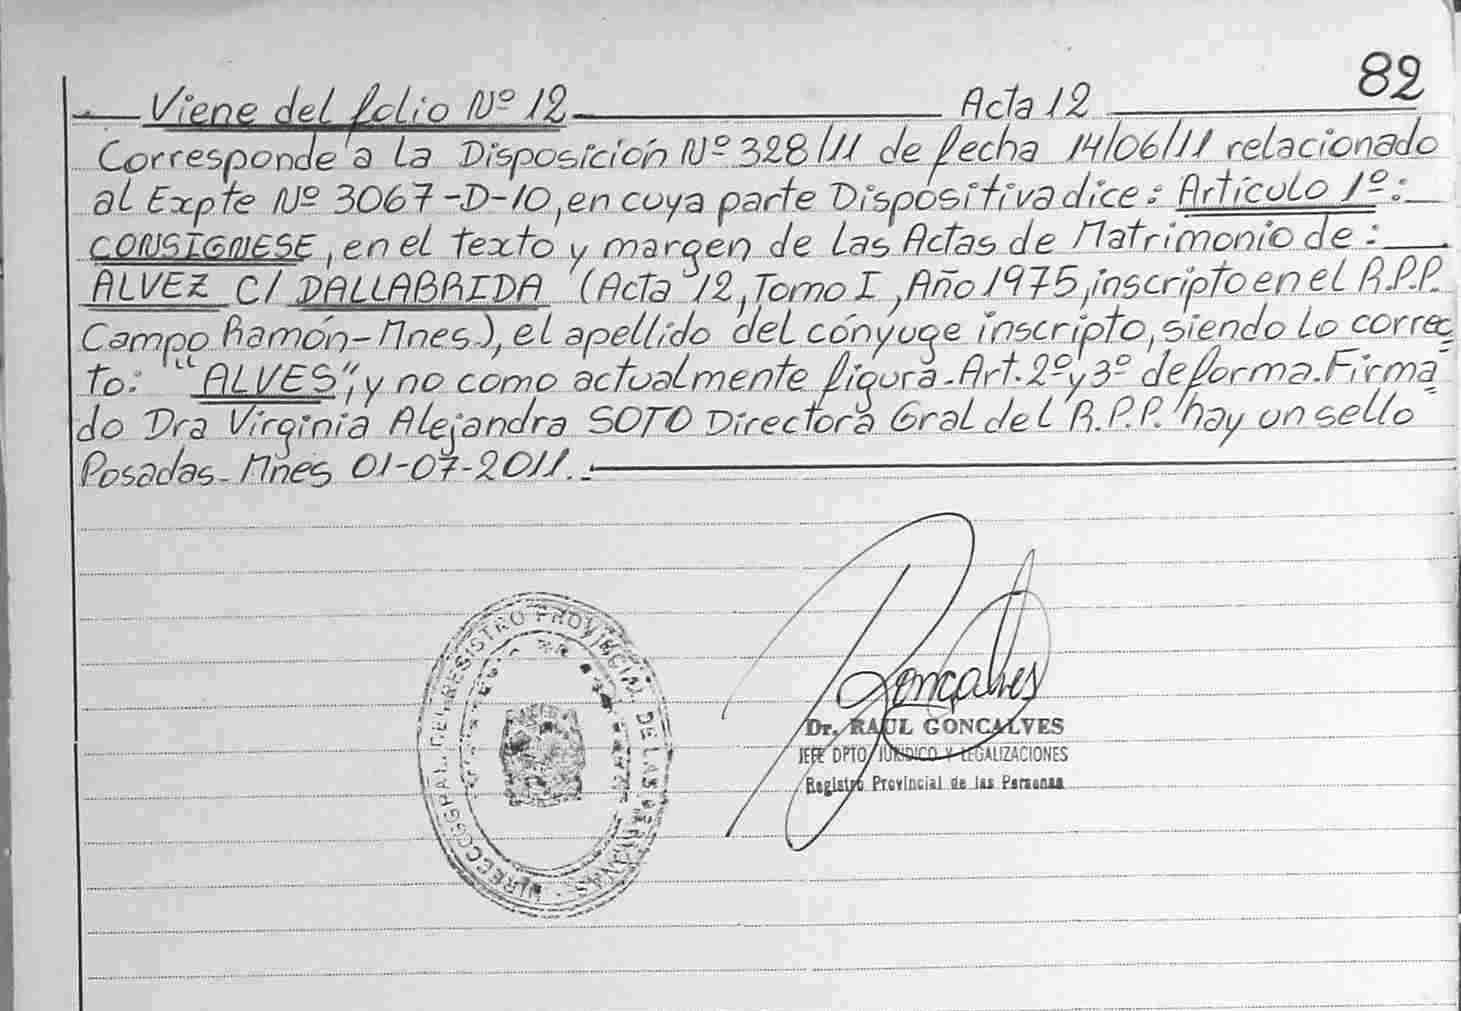 82
Viene del folio Nº 12 Acta 12
Corresponde a la Disposición Nº 328/11 de fecha 14/06/11 relacionado
al Expte Nº 3067-D-10, en cuya parte Dispositiva dice: Artículo 1º:
CONSIGNESE, en el texto y margen de las Actas de Matrimonio de:
ALVEZ C/ DALLABRIDA (Acta 12, Tomo I, Año 1975, inscripto en el R.P.P.
Campo Ramón-Mnes.), el apellido del cónyuge inscripto, siendo lo correc=
to: "ALVES", y no como actualmente figura. Art. 2º y 3º de forma. Firma=
do Dra Virginia Alejandra SOTO Directora Gral del R.P.P. hay un sello
Posadas-Mnes 01-07-2011.-
Goncalves
Dr. RAUL GONCALVES
JEFE DPTO JURIDICO Y LEGALIZACIONES
Registro Provincial de las Personas
DIRECC. GRAL. DEL REGISTRO PROVINCIAL DE LAS PERSONAS